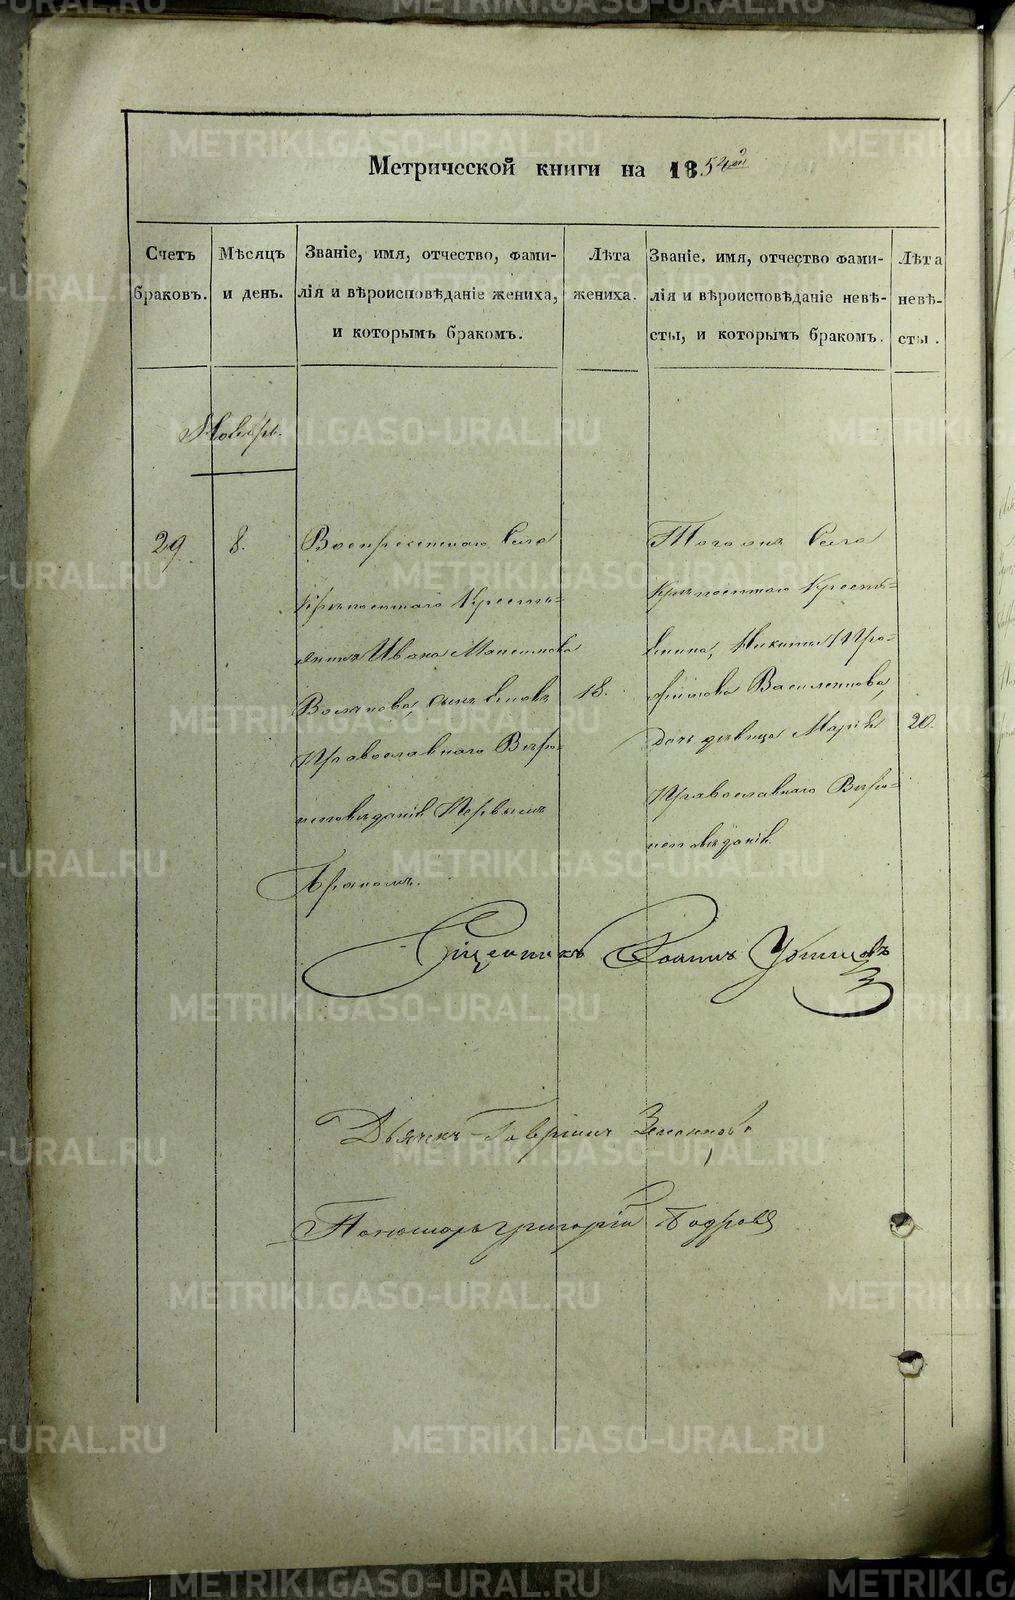 Метрической книги на 1854й
Счетъ браковъ.
Мѣсяцъ и день.
Званіе, имя, отчество, фами-
лія и вѣроисповѣданіе жениха,
и которымъ бракомъ.
Лѣта жениха.
Званіе, имя, отчество фами-
лія и вѣроисповѣданіе невѣ-
сты, и которымъ бракомъ.
Лѣта невѣ-
сты.
Ноябрь.
29
8.
Воскресенскаго Села
Крѣпостнаго Кресть-
янина Ивана Максимова
сынъ
Православнаго Вѣро-
исповѣданія Первымъ
Бракомъ.
18.
Того же Села
Крѣпостнаго Кресть-
янина, Никиты
дочь девица Марія
Православнаго Вѣро-
исповѣданія.
20.
Священникъ Іоаннъ
Дьячекъ Гавріилъ
Пономарь Григорій
METRIKI.GASO-URAL.RU